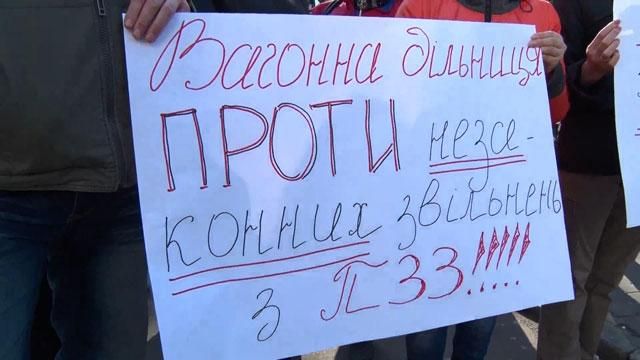 Вагонна дільниця
ПРОТИ неза-
конних звільнень
з ПЗЗ!!!!!